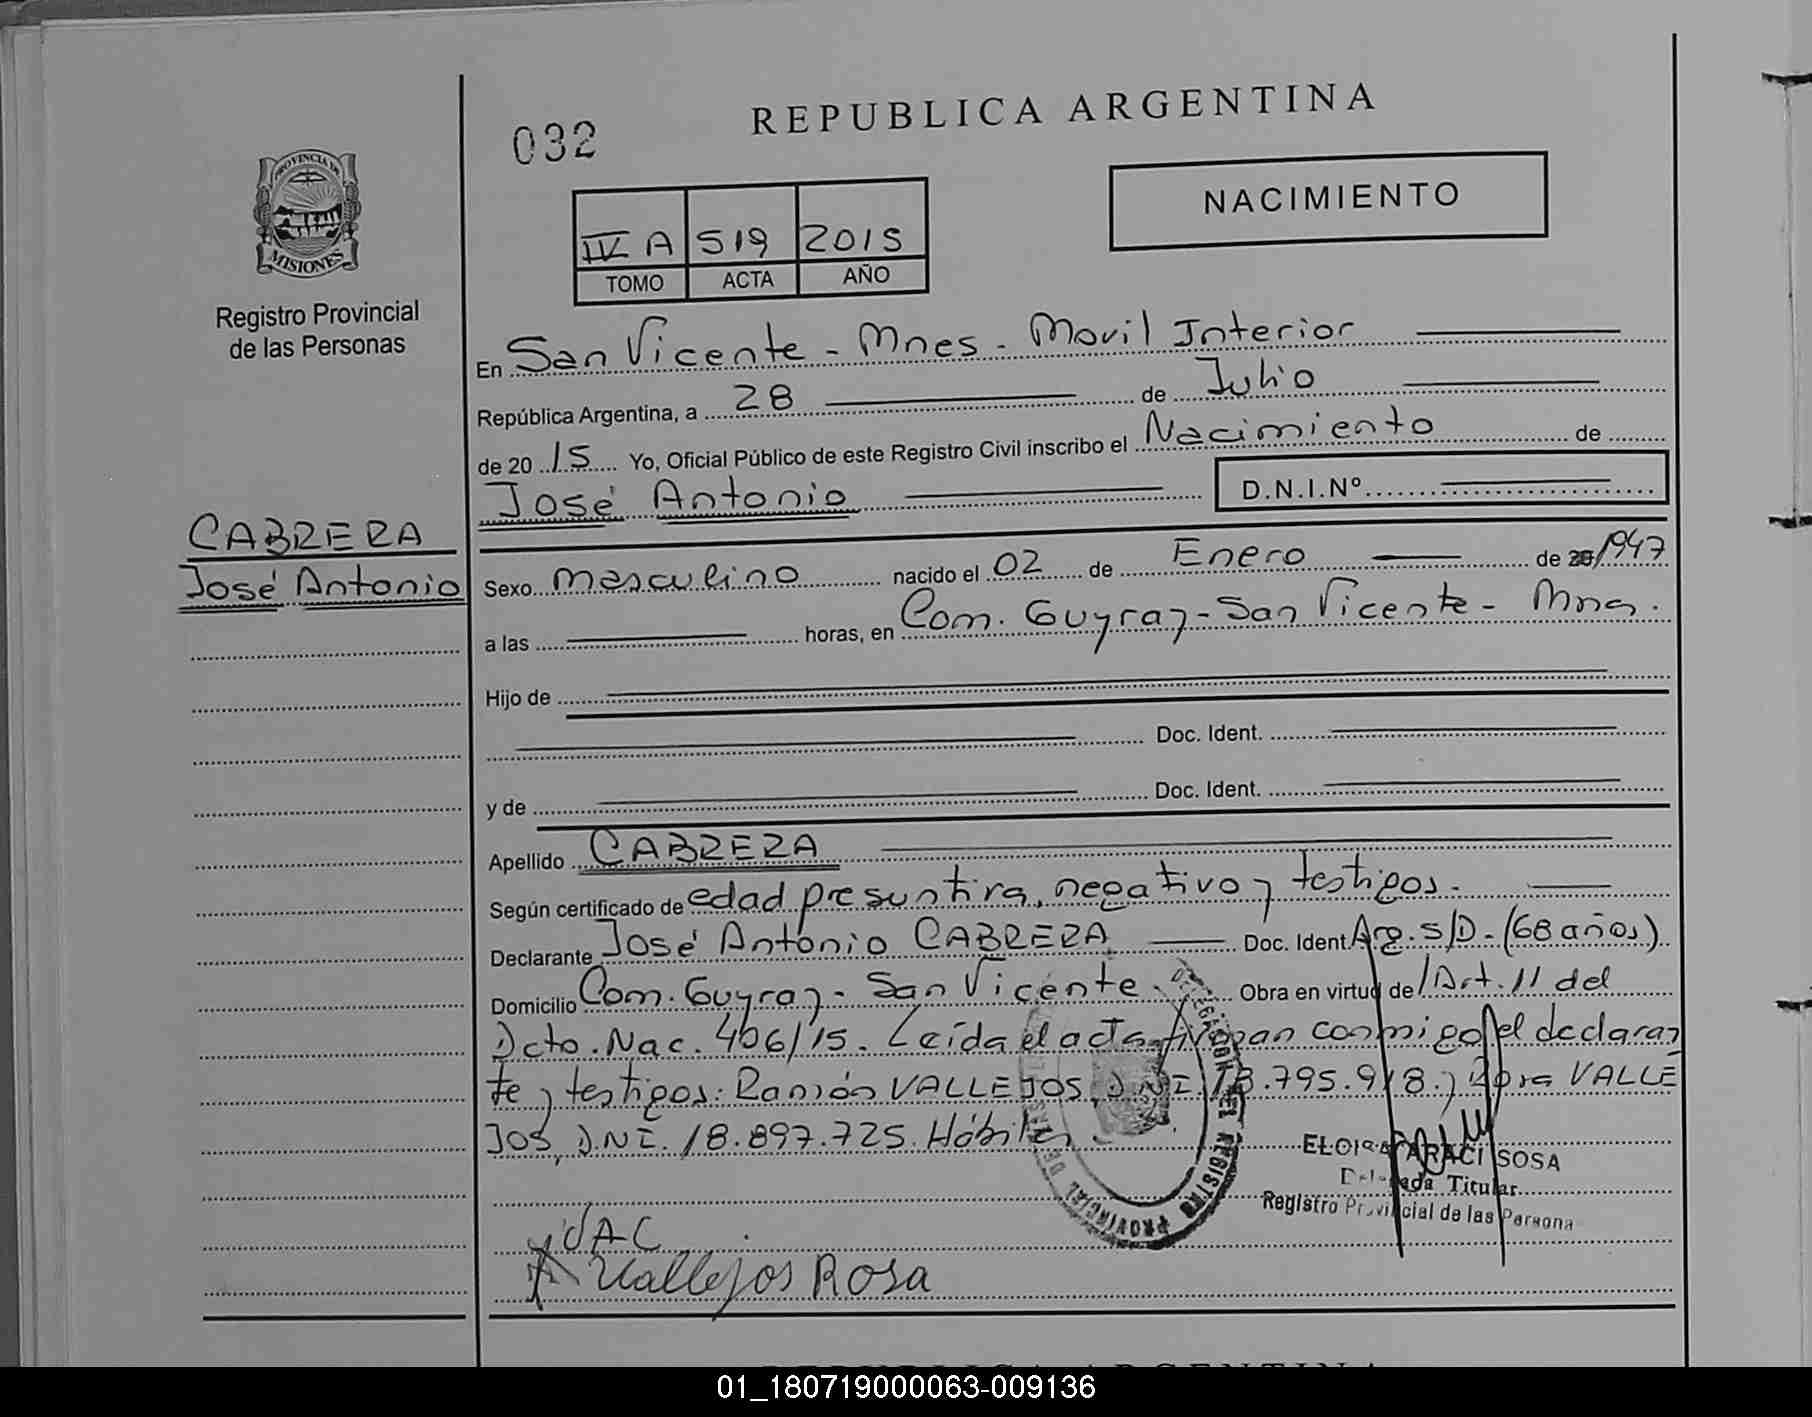 REPUBLICA ARGENTINA
032
NACIMIENTO
PROVINCIA DE
MISIONES
Registro Provincial
de las Personas
IV A 519 2015
TOMO ACTA AÑO
En San Vicente - Mnes - Movil Interior
República Argentina, a 28 de Julio
de 20 15 Yo, Oficial Público de este Registro Civil inscribo el Nacimiento de
José Antonio D.N.I.Nº
CABRERA
José Antonio
Sexo masculino nacido el 02 de Enero de 1947
a las horas, en Com. Guyray - San Vicente - Mnes.
Hijo de
Doc. Ident.
y de Doc. Ident.
Apellido CABRERA
Según certificado de edad presuntiva, negativo y testigos.
Declarante José Antonio CABRERA Doc. Ident. Arg. S/D - (68 años)
Domicilio Com. Guyray - San Vicente. Obra en virtud de Art. 11 del
Dcto. Nac. 406/15. Leída el acta firman conmigo el declaran
te y testigos: Ramón VALLEJOS, D.N.I. 18.795.918. y Rosa VALLE
JOS, D.N.I. 18.897.725. Hábiles.
DELEGACION DEL REGISTRO PROVINCIAL DE LAS
ELOISA ARACI SOSA
Delegada Titular
Registro Provincial de las Persona
JAC
Vallejos Rosa
REPUBLICA ARGENTINA
01_180719000063-009136